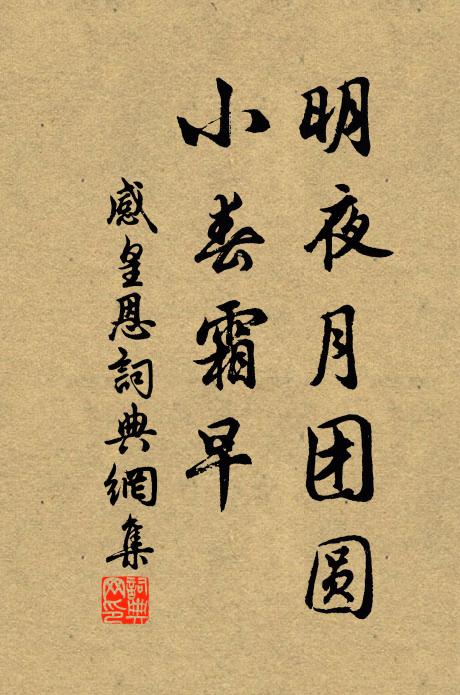 明夜月团圆
小春霜早
感皇恩詞典網集
詞典
网印